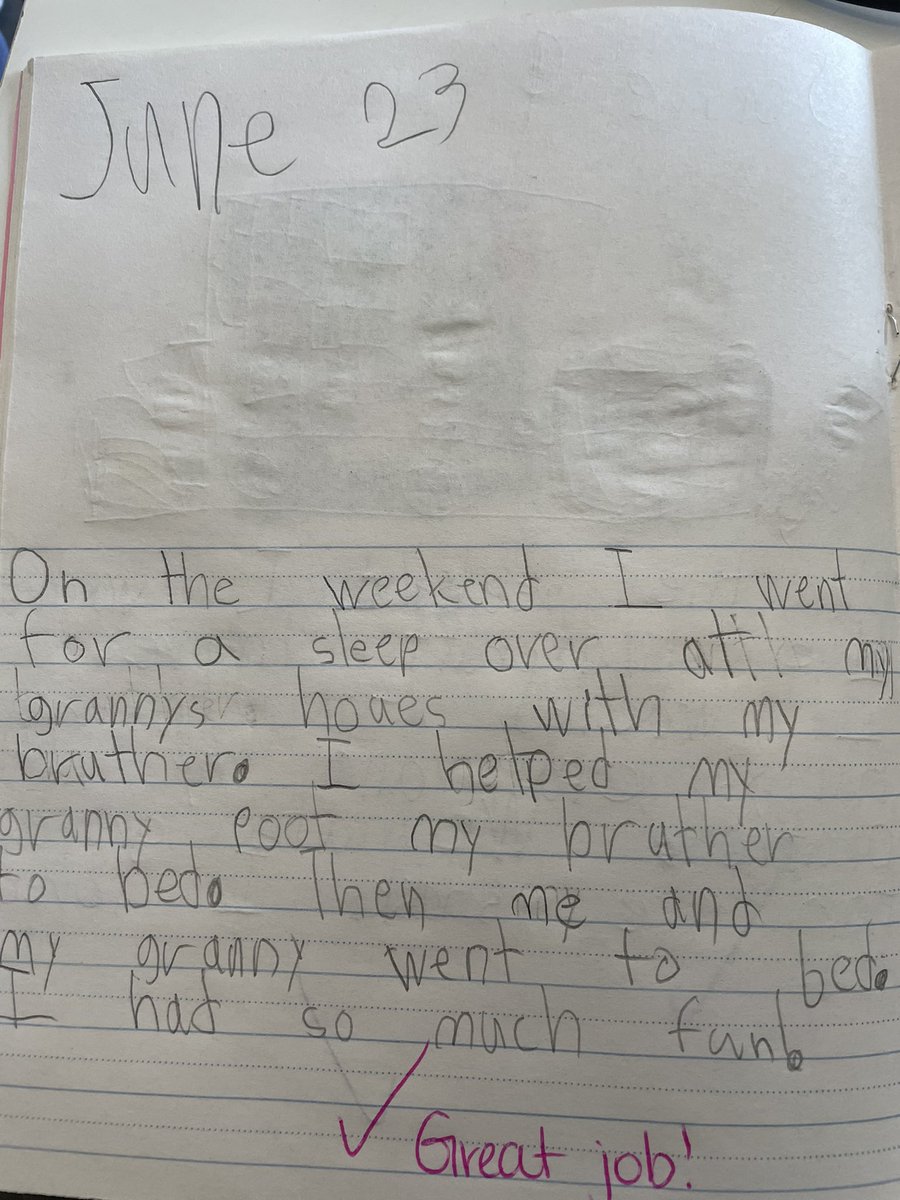 June 23
On the weekend I went
for a sleep over at my
grannys houes with my
bruther. I helped my
granny poot my bruther
to bed. Then me and
my granny went to bed.
I had so much fun.
Great job!